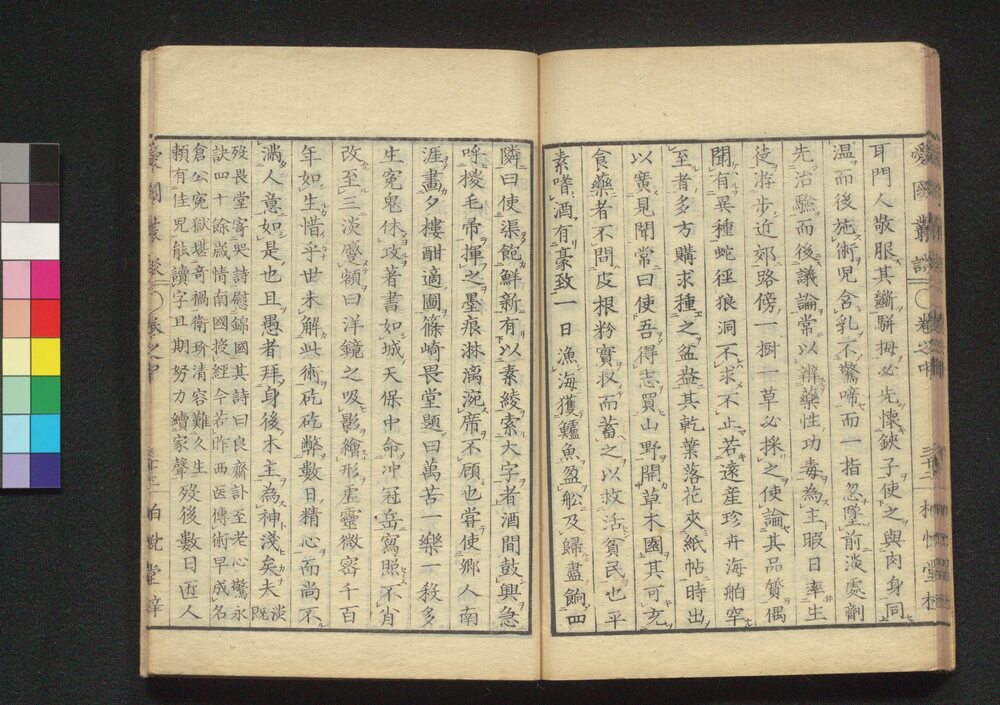 耳門人敬服其斷駢拇必先懷鋏子使之與肉身同
温而後施術兒含乳不驚啼而一指忽墜前淡處劑
先治驗而後議論常以辨藥性功毒為主暇日率生
徒游步近郊路傍一樹一草必採之使論其品質偶
聞有異種蛇徑狼洞不求不止若遠産珍卉海舶罕
至者多方購求種之盆益其乾葉落花夾紙帖時出
以廣見聞常曰使吾得志買山野開草木園其可充
食藥者不問皮根粉實收而蓄之以救活貧民也平
素嗜酒有豪致一日漁海獲鱸魚盈舩及歸盡餉四
隣曰使渠飽鮮新有以素綾索大字者酒間鼓興急
呼椶毛帚揮之墨痕淋漓涴席不顧也嘗使鄉人南
涯畫夕樓酣適圖篠崎畏堂題曰萬苦一樂一殺多
生冤鬼休攻著書如城天保中命冲冠岳寫照不肖
改至三淡蹙額曰洋鏡之吸影繪形虛靈微密千百
年如生惜乎世未解此術矻矻弊數日精心而尚不
滿人意如是也且愚者拜身後木主為神淺矣夫淡既
歿畏堂寄哭詩慰錦國其詩曰良齋訃至老心驚永
訣四十餘歲情南國授經今若昨西医傳術早成名
倉公寃獄堪奇禍衛玠清容難久生
賴有佳兒能讀字且期努力續家聲歿後數日匠人
愛國叢談
卷之中